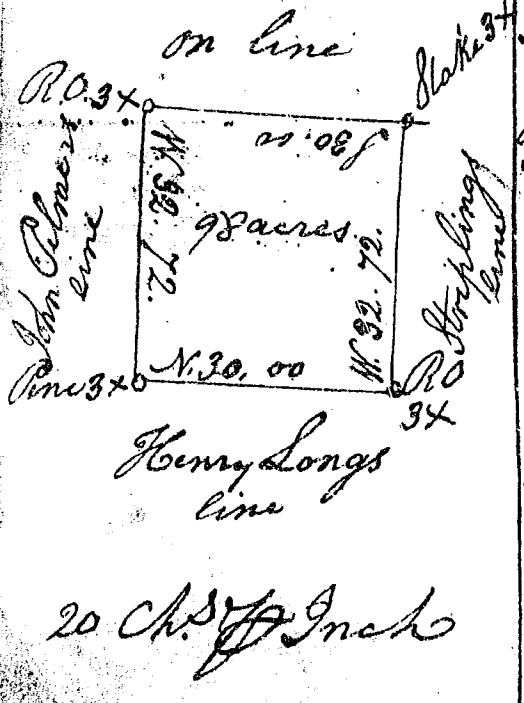 on line
R.O. 3x
Stake 3x
S 30. 00
John Pilmers
line
W. 32. 72.
98 acres.
W. 32. 72.
Striplings
line
Pine 3x
N. 30. 00
R O
3X
Henry Longs
line
20 Chs. Inch